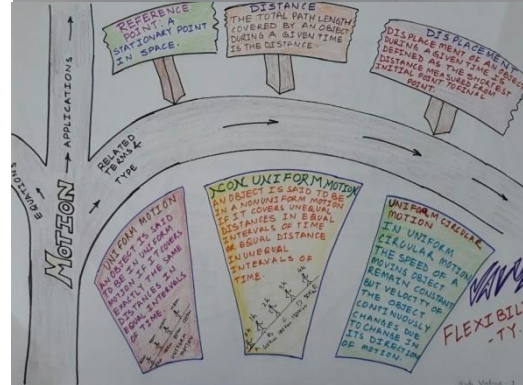 REFERENCE
POINT: A
STATIONARY POINT
IN SPACE.
DISTANCE
THE TOTAL PATH LENGTH
COVERED BY AN OBJECT
DURING A GIVEN TIME
IS THE DISTANCE.
DISPLACEMENT
DISPLACEMENT OF AN OBJECT
DURING A GIVEN TIME IS
DEFINED AS THE SHORTEST
DISTANCE MEASURED FROM
INITIAL POINT TO FINAL
POINT.
APPLICATIONS
EQUATIONS
MOTION
RELATED
TERMS &
TYPE
UNIFORM MOTION
AN OBJECT IS SAID
TO BE IN UNIFORM
MOTION IF IT COVERS
EXACTLY THE SAME
DISTANCES IN
EQUAL INTERVALS
OF TIME.
NON UNIFORM MOTION
AN OBJECT IS SAID TO BE
IN A NONUNIFORM MOTION
IF IT COVERS UNEQUAL
DISTANCES IN EQUAL
INTERVALS OF TIME
OR EQUAL DISTANCE
IN UNEQUAL
INTERVALS OF
TIME.
UNIFORM CIRCULAR
MOTION
IN UNIFORM
CIRCULAR MOTION
THE SPEED OF A
MOVING OBJECT
REMAIN CONSTANT
BUT VELOCITY OF
THE OBJECT
CONTINUOUSLY
CHANGES DUE
TO CHANGE IN
ITS DIRECTION
OF MOTION.
FLEXIBILI
-TY